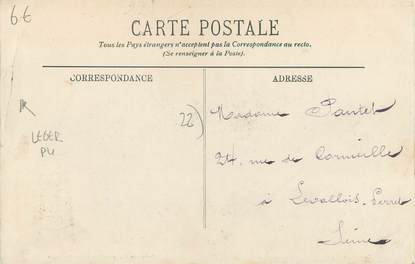 66
CARTE POSTALE
Tous les Pays étrangers n'acceptent pas la Correspondance au recto.
(Se renseigner à la Poste).
CORRESPONDANCE
ADRESSE
22)
LEGER
PLI
Madame Pautet
24, rue de Cormeille
à Levallois-Perret
Seine